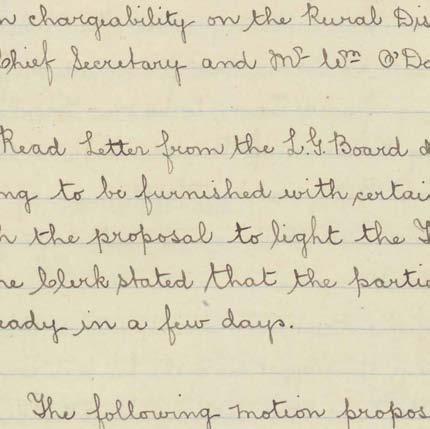 n chargeability on the Rural Dis
Chief Secretary and Mr Wm O'Do
Read Letter from the L.G. Board d
ng to be furnished with certai
h the proposal to light the T
he Clerk stated that the partic
eady in a few days.
The following motion propos